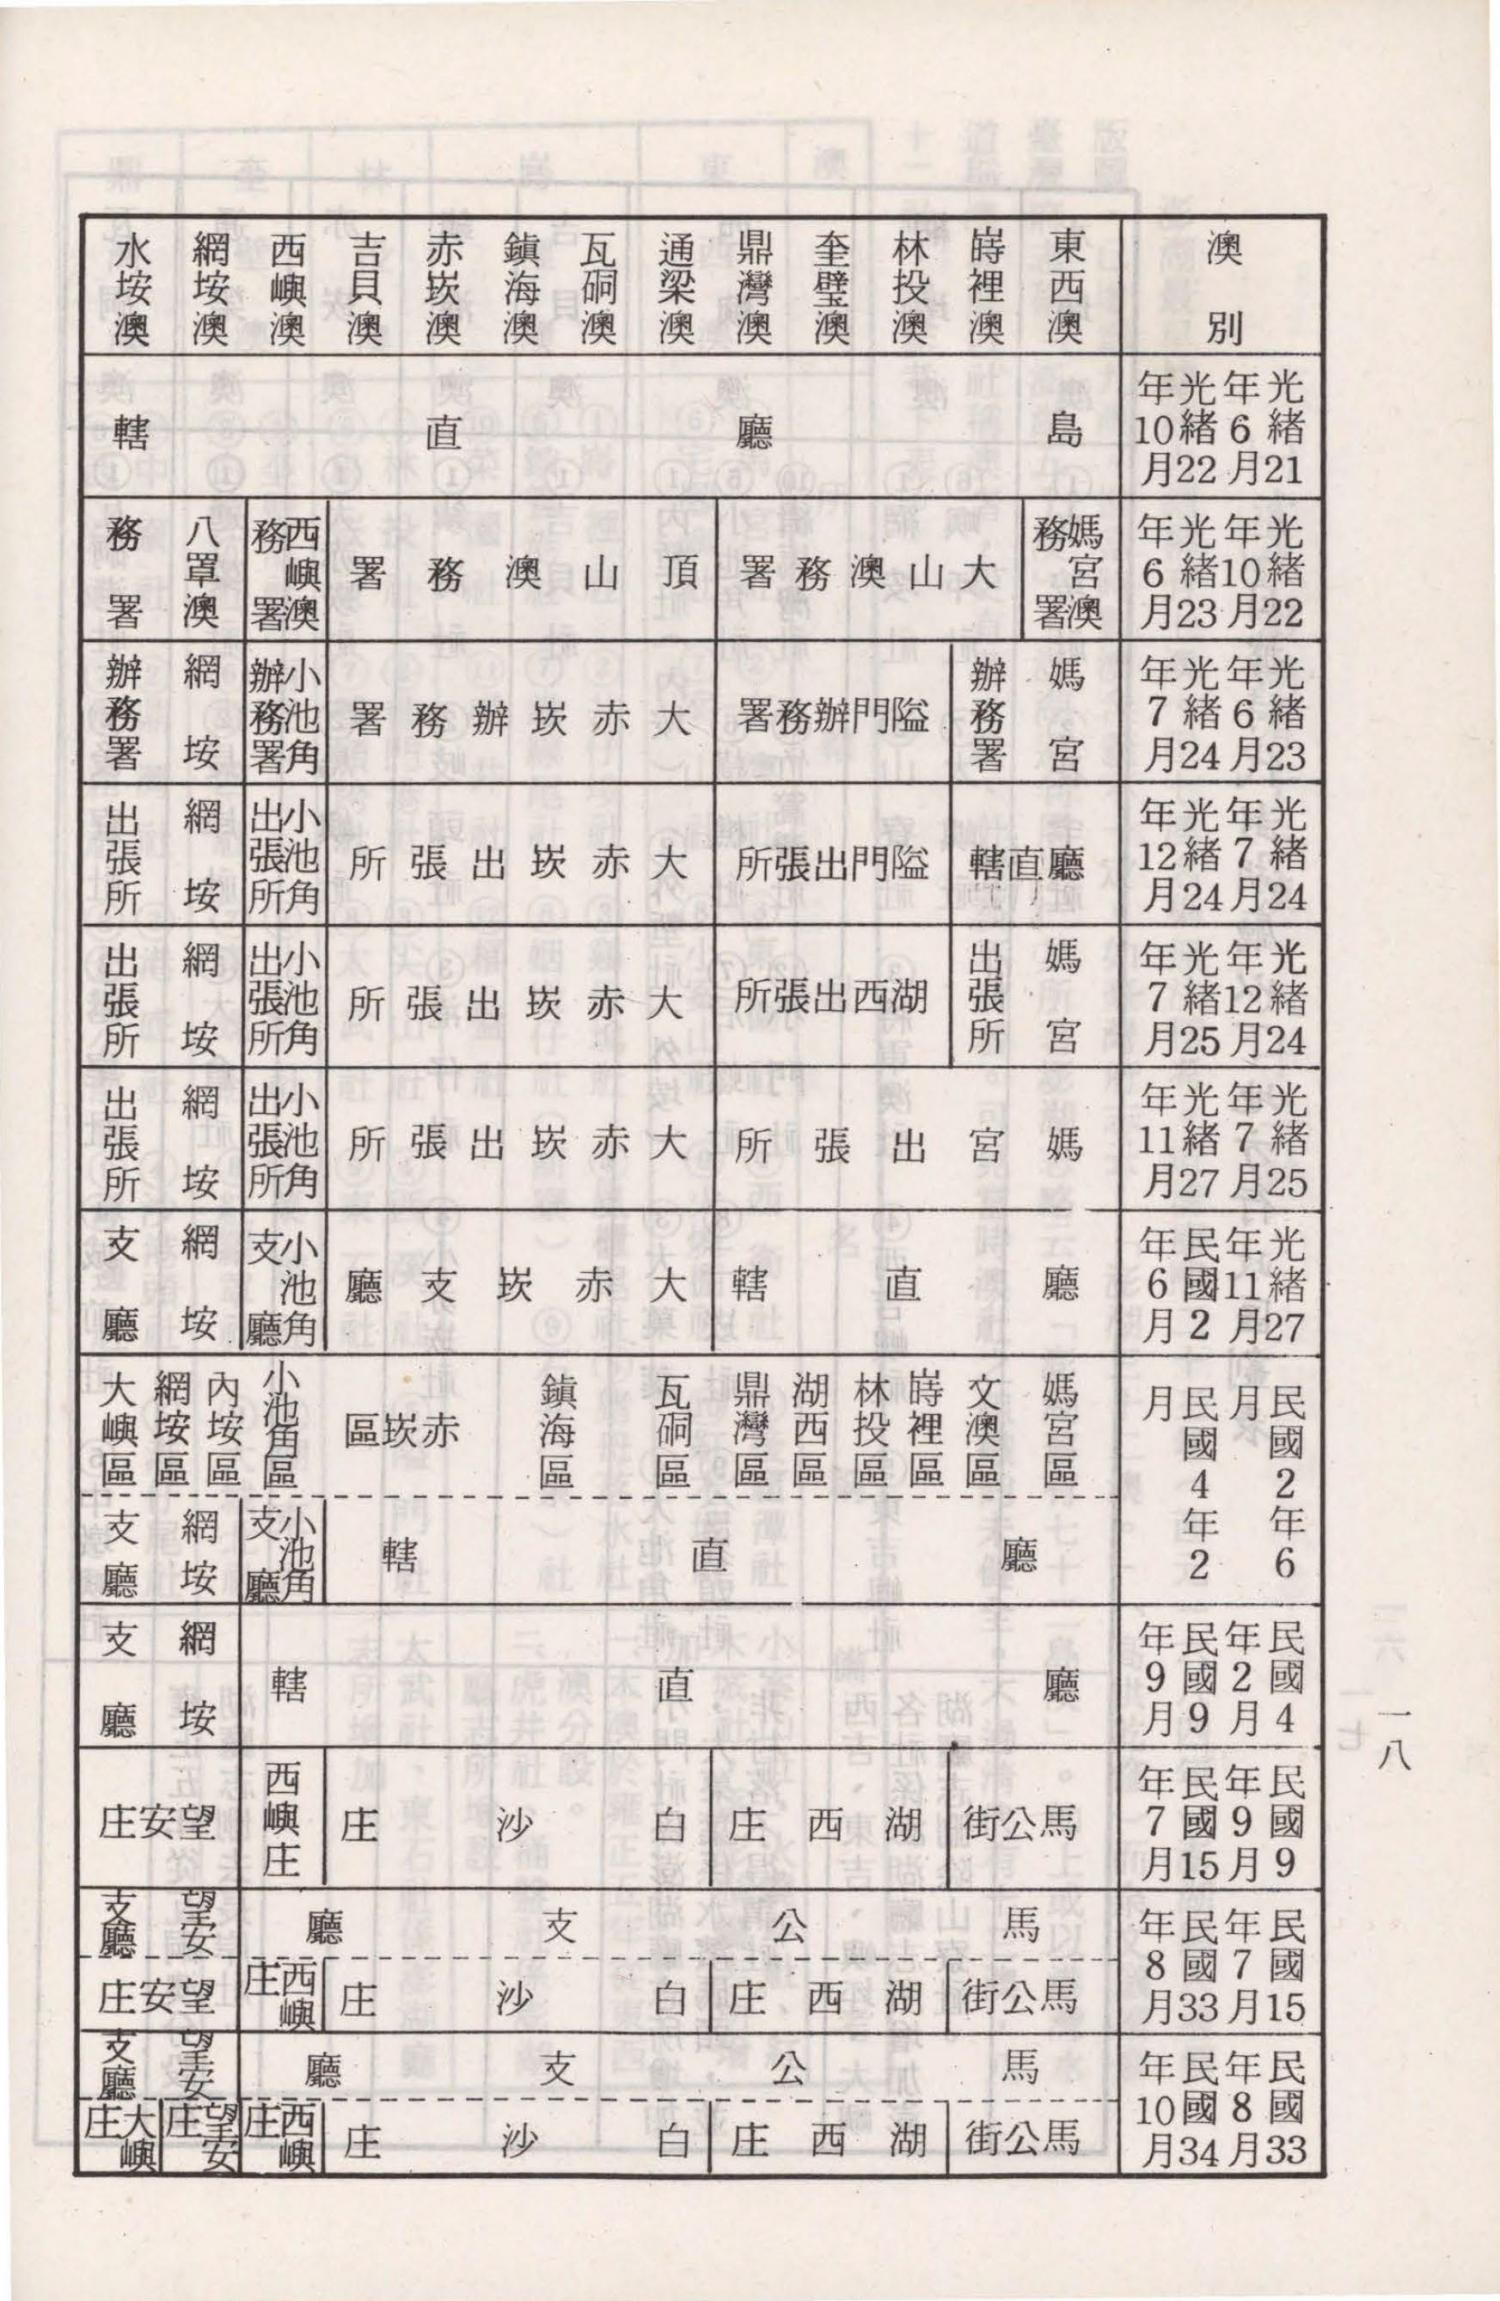 澳別
東西澳
嵵裡澳
林投澳
奎璧澳
鼎灣澳
通梁澳
瓦硐澳
鎮海澳
赤崁澳
吉貝澳
西嶼澳
網垵澳
水垵澳
光緒21年6月
光緒22年10月
島廳直轄
光緒22年10月
光緒23年6月
媽宮澳務署
大山澳務署
頂山澳務署
西嶼澳務署
八罩澳務署
光緒23年6月
光緒24年7月
媽宮辦務署
隘門辦務署
大赤崁辦務署
小池角辦務署
網垵辦務署
光緒24年7月
光緒24年12月
廳直轄
隘門出張所
大赤崁出張所
小池角出張所
網垵出張所
光緒24年12月
光緒25年7月
媽宮出張所
湖西出張所
大赤崁出張所
小池角出張所
網垵出張所
光緒25年7月
光緒27年11月
媽宮出張所
大赤崁出張所
小池角出張所
網垵出張所
光緒27年11月
民國2年6月
廳直轄
大赤崁支廳
小池角支廳
網垵支廳
民國2年6月
民國4年2月
媽宮區
文澳區
嵵裡區
林投區
湖西區
鼎灣區
瓦硐區
鎮海區
赤崁區
小池角區
內垵區
網垵區
大嶼區
廳直轄
小池角支廳
網垵支廳
民國4年2月
民國9年9月
廳直轄
網垵支廳
民國9年9月
民國15年7月
馬公街
湖西庄
白沙庄
西嶼庄
望安庄
民國15年7月
民國33年8月
馬公支廳
望安支廳
馬公街
湖西庄
白沙庄
西嶼庄
望安庄
民國33年8月
民國34年10月
馬公支廳
望安支廳
馬公街
湖西庄
白沙庄
西嶼庄
望安庄
大嶼庄
一八